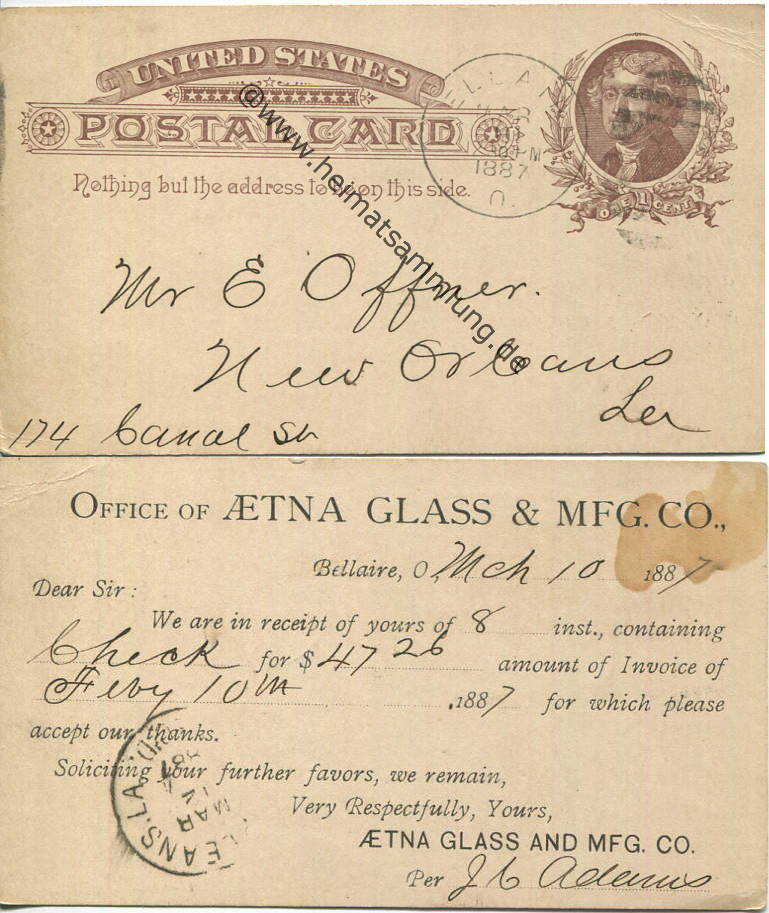 UNITED STATES
POSTAL CARD
Nothing but the address to be on this side.
1887
O.
ONE 1 CENT
@www.heimatsammlung.de
Mr E Offner.
New Orleans
La
174 Canal St
OFFICE OF ÆTNA GLASS & MFG. CO.,
Bellaire, O, Mch 10 1887
Dear Sir:
We are in receipt of yours of 8 inst., containing
Check for $47 26 amount of Invoice of
Feby 10th .1887 for which please
accept our thanks.
Soliciting your further favors, we remain,
Very Respectfully, Yours,
ÆTNA GLASS AND MFG. CO.
Per J C Adams
EANS, LA.
MAR